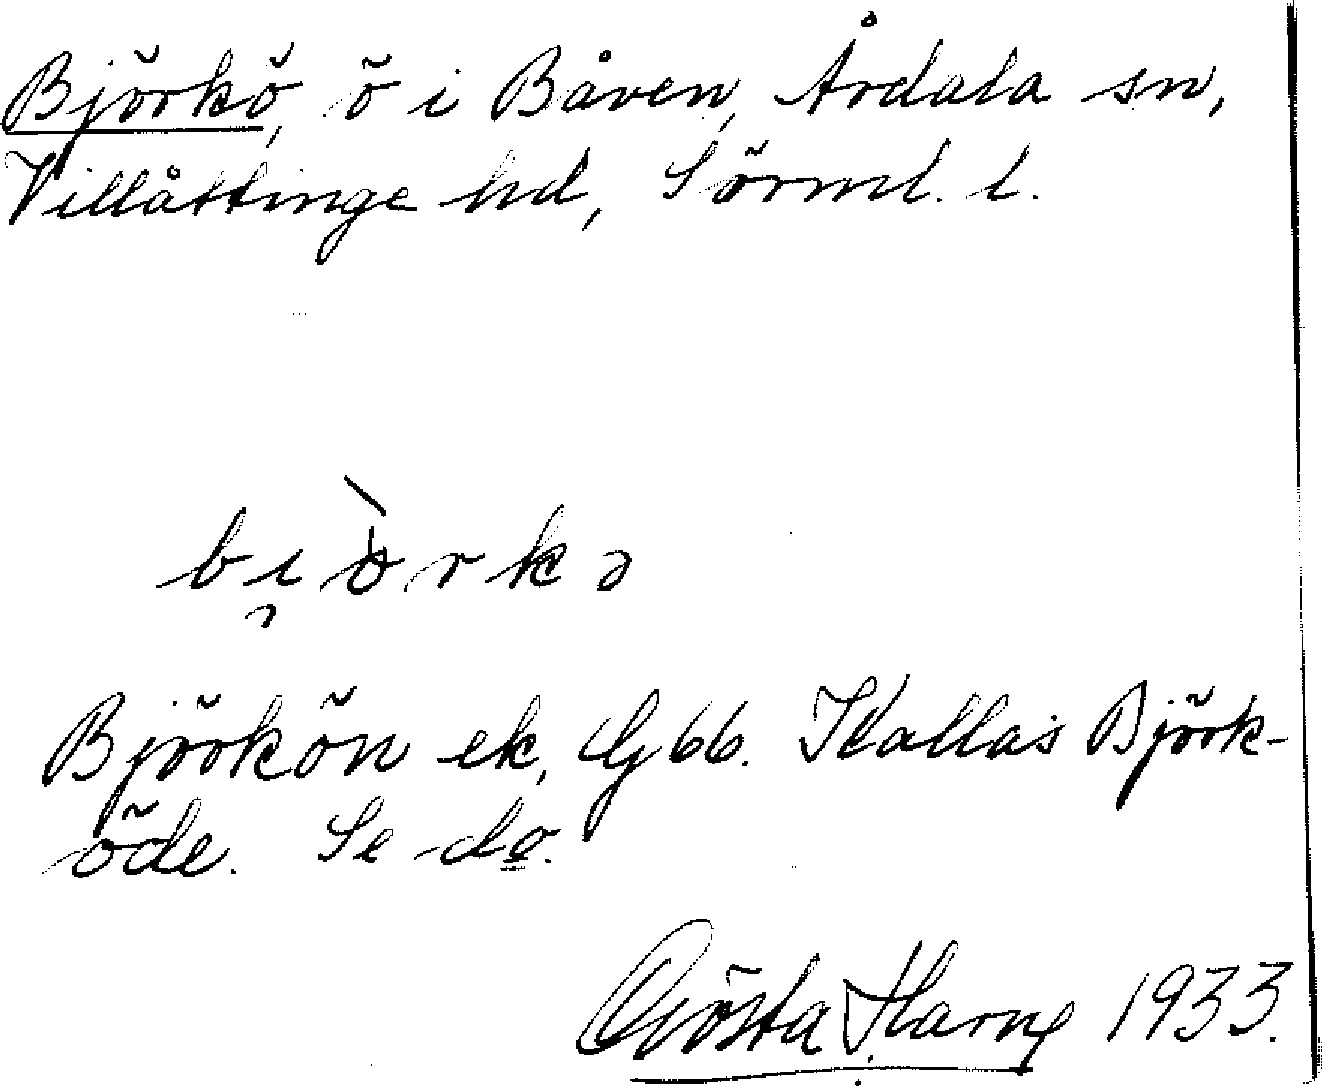 Björkö, ö i Båven, Årdala sn,
Villåttinge hd, Sörml. l.
bi̯ò̀rkə
Björkön ek, Gj 66. Kallas Björk-
öde. Se do.
Gösta Harne 1933.